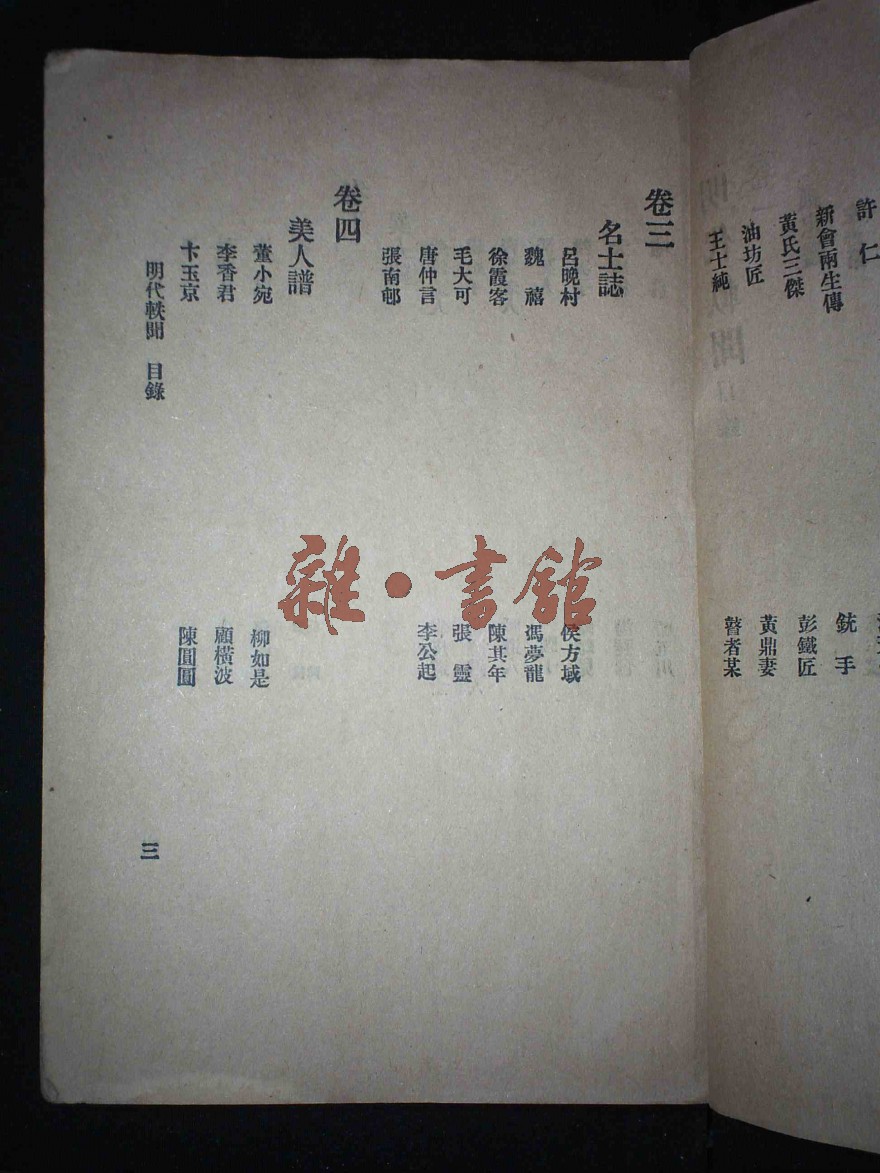 許仁
新會兩生傳
黃氏三傑
油坊匠
王士純
銃手
彭鐵匠
黃鼎妻
瞽者某
卷三
名士誌
呂晚村 侯方域
魏禧 馮夢龍
徐霞客 陳其年
毛大可 張靈
唐仲言 李公起
張南邨
卷四
美人譜
董小宛 柳如是
李香君 顧橫波
卞玉京 陳圓圓
明代軼聞 目錄
三
雜·書館